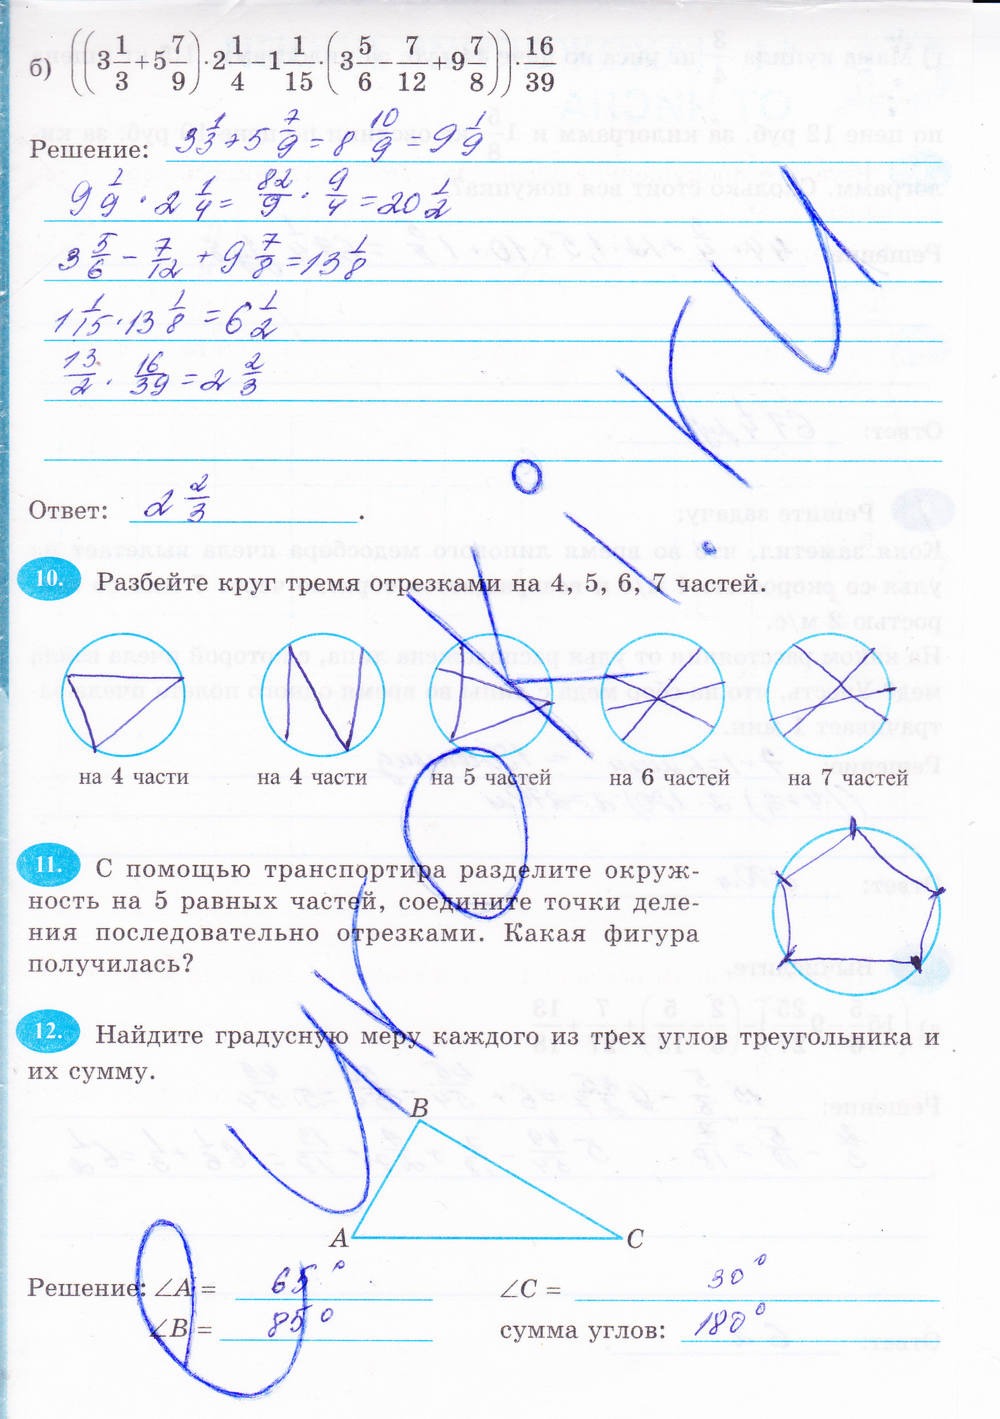 б) ((3 1/3+5 7/9)·2 1/4−1 1/15·(3 5/6−7/12+9 7/8))·16/39
Решение: 3 1/3+5 7/9=8 10/9=9 1/9
9 1/9·2 1/4=82/9·9/4=20 1/2
3 5/6−7/12+9 7/8=13 1/8
1 1/15·13 1/8=6 1/2
13/2·16/39=2 2/3
Ответ: 2 2/3.
10. Разбейте круг тремя отрезками на 4, 5, 6, 7 частей.
на 4 части на 4 части на 5 частей на 6 частей на 7 частей
11. С помощью транспортира разделите окруж-
ность на 5 равных частей, соедините точки деле-
ния последовательно отрезками. Какая фигура
получилась?
12. Найдите градусную меру каждого из трех углов треугольника и
их сумму.
B
A C
Решение: ∠A = 65° ∠C = 30°
∠B = 85° сумма углов: 180°